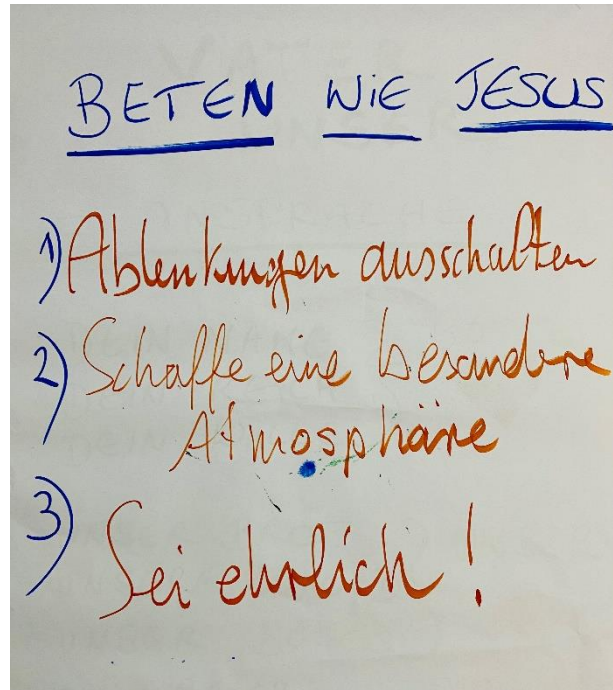 BETEN WiE JESUS
1) Ablenkungen ausschalten
2) Schaffe eine besondere
Atmosphäre
3) Sei ehrlich!